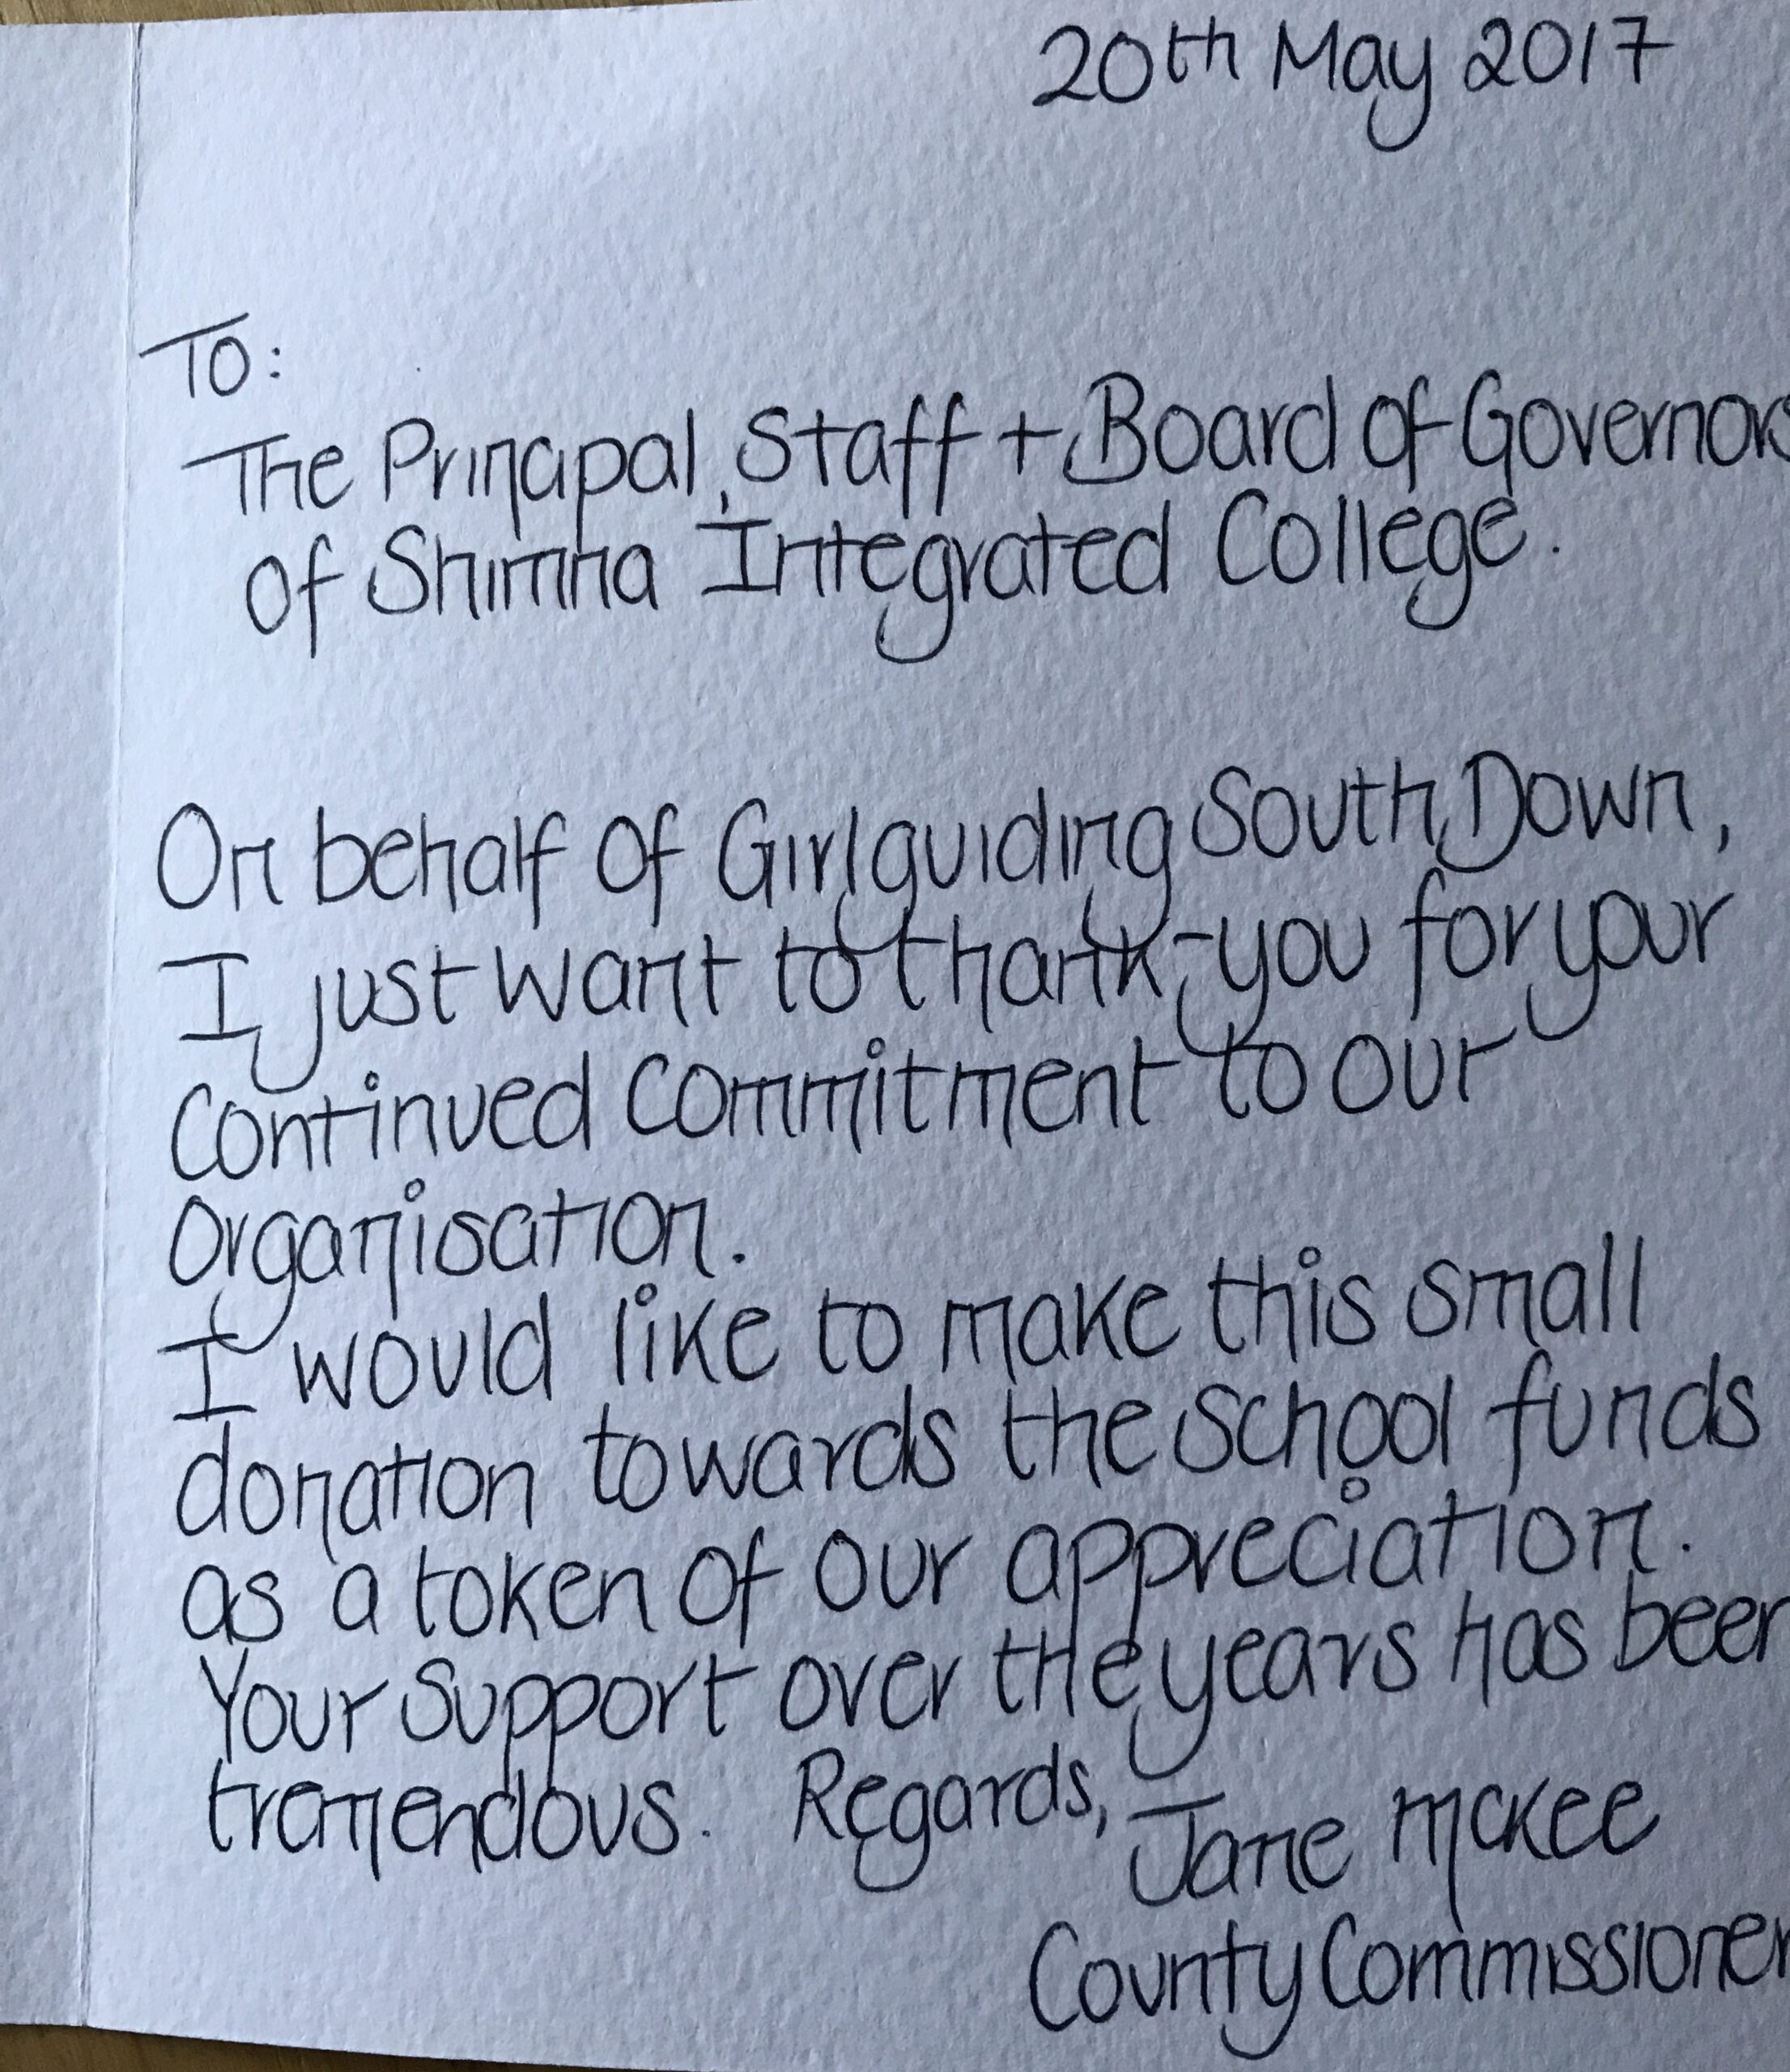 20th May 2017
To:
The Principal, Staff + Board of Governors
of Shimna Integrated College.
On behalf of Girlguiding South Down,
I just want to thank-you for your
continued commitment to our
organisation.
I would like to make this small
donation towards the school funds
as a token of our appreciation.
Your support over the years has been
tremendous. Regards, Jane McKee
County Commissioner